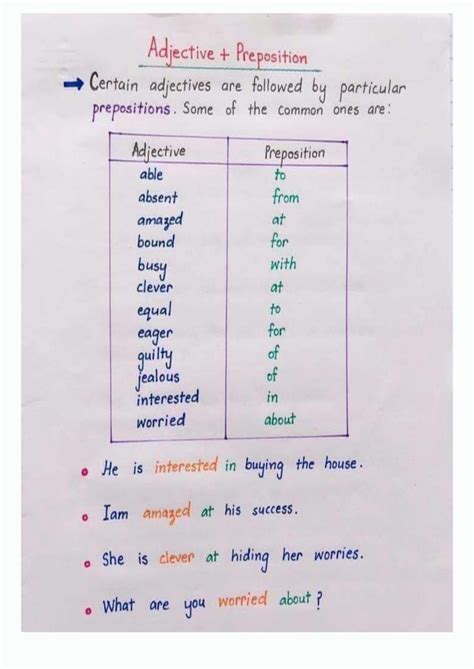 Adjective + Preposition
→ Certain adjectives are followed by particular
prepositions. Some of the common ones are:
Adjective Preposition
able to
absent from
amazed at
bound for
busy with
clever at
equal to
eager for
guilty of
jealous of
interested in
worried about
• He is interested in buying the house.
• Iam amazed at his success.
• She is clever at hiding her worries.
• What are you worried about?